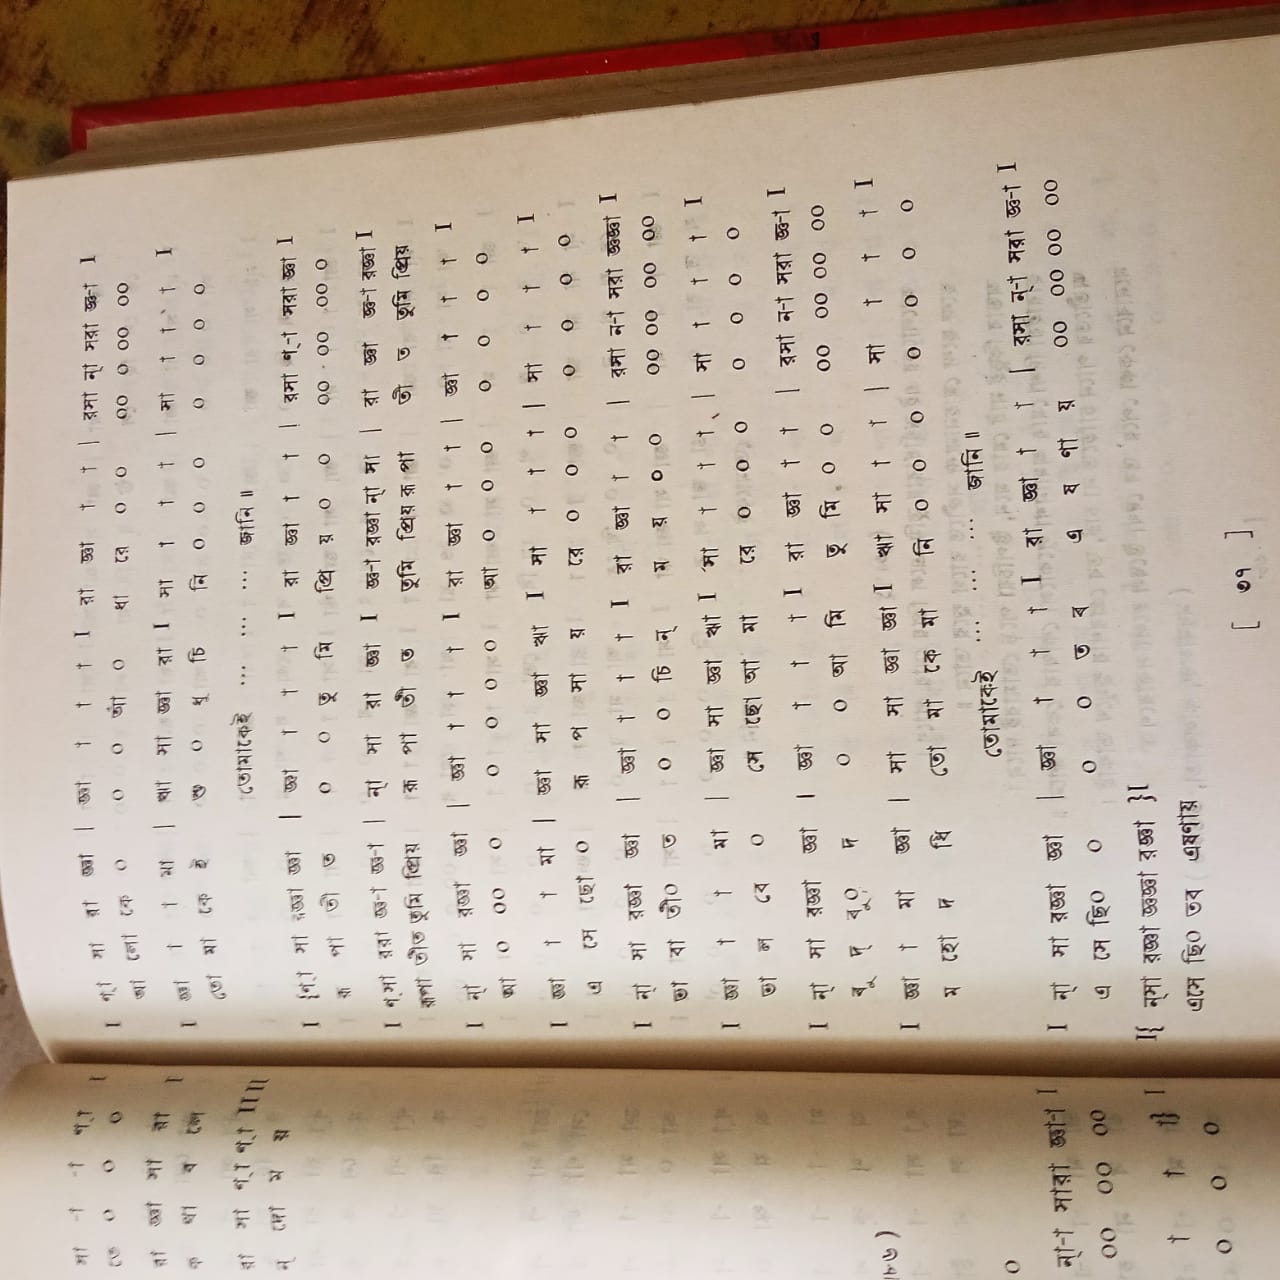 I ণ্া সা রা জ্ঞা | জ্ঞা া া া I রা জ্ঞা া া | রসা ন্া সরা জ্ঞ-া I
আ লো কে ০ ০ ০ আঁ ০ ধা রে ০ ০ ০০ ০ ০০ ০০
I জ্ঞা া মা | ঋা সা জ্ঞা রা I সা া া া | সা া া া I
তো মা কে ই শু ০ ধু চি নি ০ ০ ০ ০ ০ ০ ০
তোমাকেই ... ... ... জানি॥
I {ণ্া সা রজ্ঞা জ্ঞা | জ্ঞা া া া I রা জ্ঞা া া | রসা ণ্-া সরা জ্ঞা I
রূ পা তী ত ০ ০ তু মি প্রি য় ০ ০ ০০ ০০ ০০ ০
I ণ্সা ররা জ্ঞ-া জ্ঞ-া | ন্া সা রা জ্ঞা I জ্ঞ-া রজ্ঞা ন্া সা | রা জ্ঞা জ্ঞ-া রজ্ঞা I
রূপা তীত তুমি প্রিয় রূ পা তী ত তুমি প্রিয় রূ পা তী ত তুমি প্রিয়
I ন্া সা রজ্ঞা জ্ঞা | জ্ঞা া া া I রা জ্ঞা া া | জ্ঞা া া া I
আ ০ ০০ ০ ০ ০ ০ ০ আ ০ ০ ০ ০ ০ ০ ০
I জ্ঞা া া মা | জ্ঞা সা জ্ঞা ঋা I সা া া া | সা া া া I
এ সে ছো ০ রূ প মা য় রে ০ ০ ০ ০ ০ ০ ০
I ন্া সা রজ্ঞা জ্ঞা | জ্ঞা া া া I রা জ্ঞা া া | রসা ন-া সরা জ্ঞজ্ঞা I
তা বা তী০ ত ০ ০ চি ন্ ম য় ০ ০ ০০ ০০ ০০ ০০
I জ্ঞা া া মা | জ্ঞা সা জ্ঞা ঋা I সা া া া | সা া া া I
তা ল বে ০ সে ছো আ মা রে ০ ০ ০ ০ ০ ০ ০
I ন্া সা রজ্ঞা জ্ঞা | জ্ঞা া া া I রা জ্ঞা া া | রসা ন-া সরা জ্ঞ-া I
বু দ্ বু০ দ ০ ০ আ মি তু মি ০ ০ ০০ ০০ ০০ ০০
I জ্ঞা া মা জ্ঞা | সা সা জ্ঞা জ্ঞা I ঋা সা া া | সা া া া I
ম হো দ ধি তো মা কে মা নি ০ ০ ০ ০ ০ ০ ০
তোমাকেই ... ... ... জানি॥
I ন্া সা রজ্ঞা জ্ঞা | জ্ঞা া া া I রা জ্ঞা া া | রসা ন্-া সরা জ্ঞ-া I
এ সে ছি০ ০ ০ ০ ত ব এ ষ ণা য় ০০ ০০ ০০ ০০
I{ ন্সা রজ্ঞা জ্ঞজ্ঞা রজ্ঞা }I
এসে ছি০ তব এষণায়
[ ৩৭ ]
সা -া -া ণ্া I
তে ০ ০ ০
রা জ্ঞা সা রা I
ক থা ব লে
রা সা ণ্া ণ্া II II
ন্ দো ম য়
ন্-া সারা জ্ঞা-া I
০ ০০ ০০ ০০
া া া} I
০ ০ ০